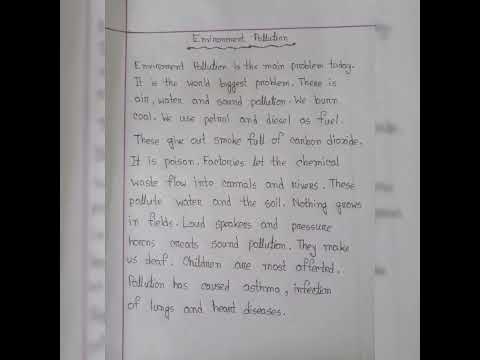 Environment Pollution
Enviroment Pollution is the main problem today.
It is the world biggest problem. There is
air, water and sound pollution. We burn
coal. We use petrol and diesel as fuel.
These give out smoke full of carbon dioxide.
It is poison. Factories let the chemical
waste flow into cannals and rivers. These
pollute water and the soil. Nothing grows
in fields. Loud speakers and pressure
horns creats sound pollution. They make
us deaf. Children are most affected.
Pollution has caused asthma, infection
of lungs and heart diseases.